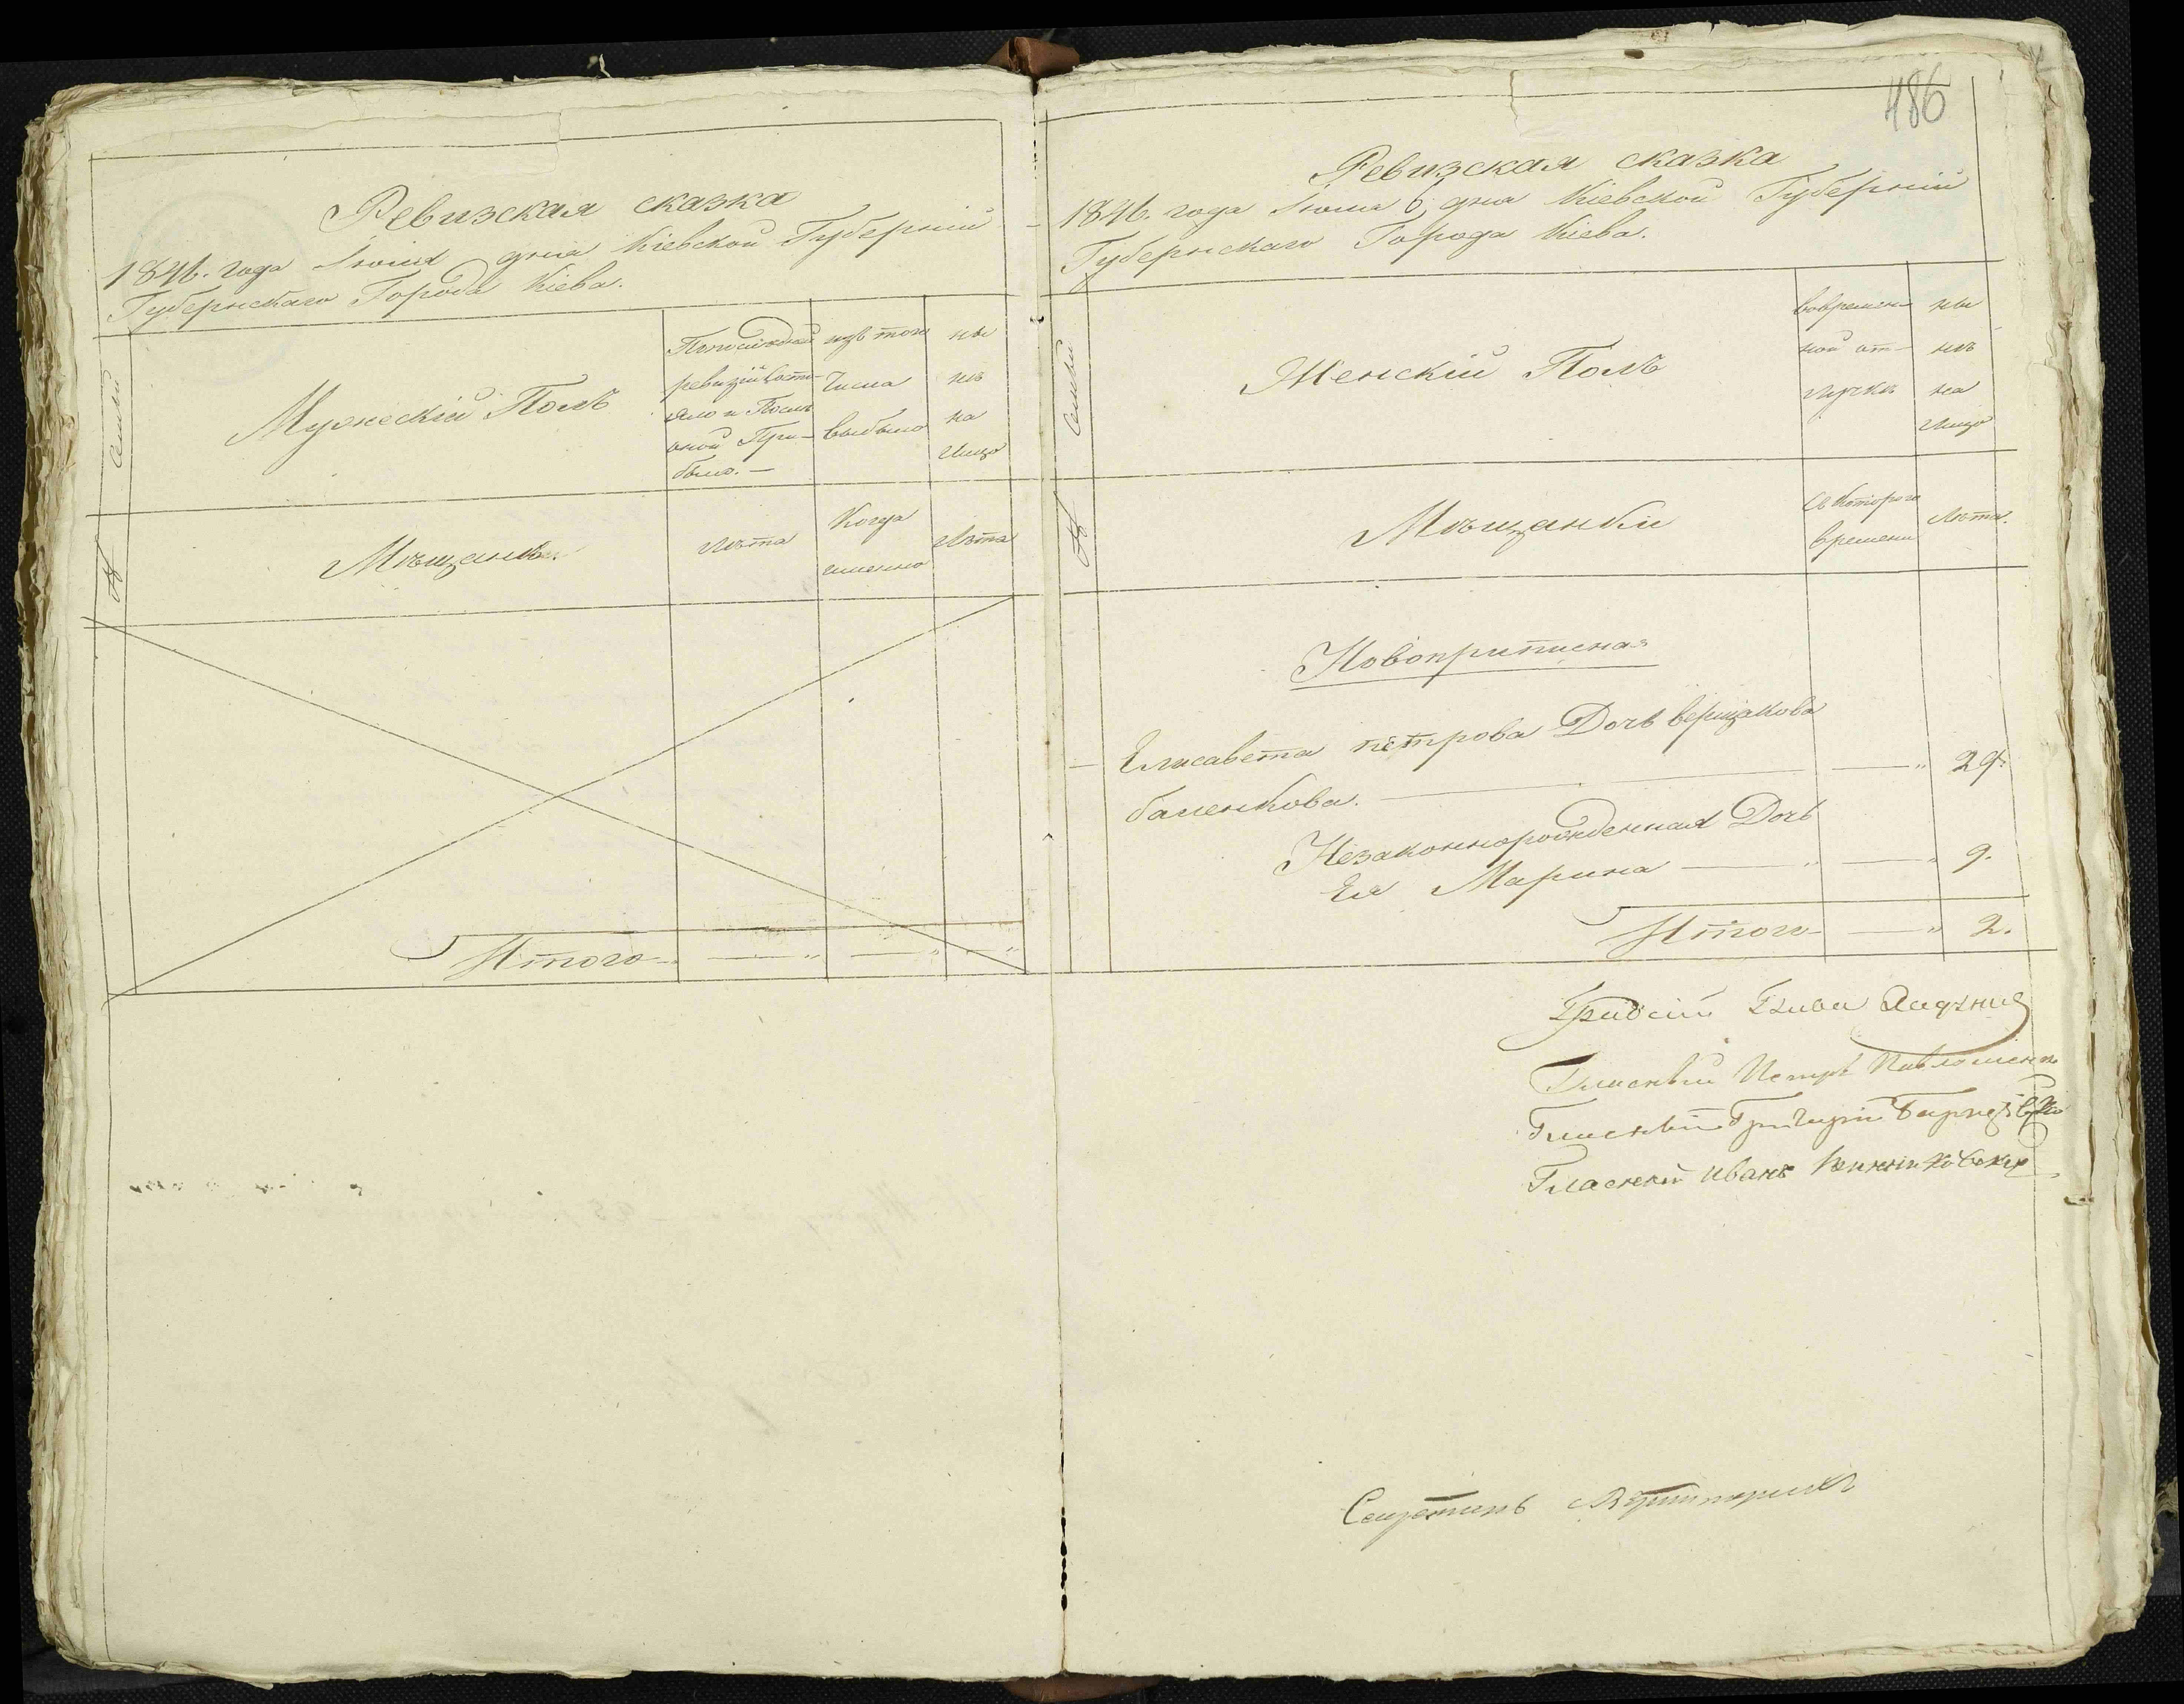 Ревизская сказка
1846. года Іюля дня Кіевской Губерніи
Губернскаго Города Кіева.
№ Семьи
Мужескій Полъ
По последней
ревизіи состо-
яло и После
оной При-
было. —
изъ того
Числа
выбыло
ны
нѣ
на
Лицо
Мѣщане.
Лѣта
Когда
именно
Лѣта
Итого
486
Ревизская сказка
1846. года Іюля 6 дня Кіевской Губерніи
Губернскаго Города Кіева.
№ Семьи
Женскій Полъ
вовремен-
ной от-
лучкѣ
ны
нѣ
на
Лицо
Мѣщанки
Съ Котораго
времени
Лѣта.
Новоприписная
Елисавета петрова Дочь вериjакова
баленкова. — 29.
Незаконнорожденная Дочь
Ея Марина — 9.
Итого — 2.
Градскій Глава
Гласный Петръ
Гласный Григорій
Гласный Иванъ